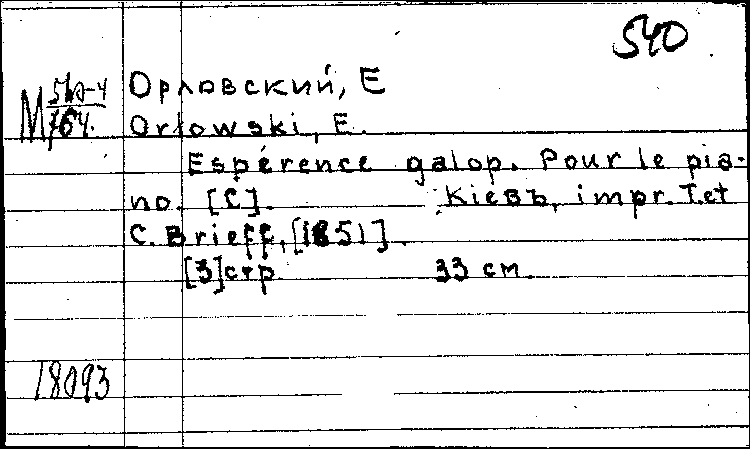 540
М 560-4/764.
Орловский, Е
Orłowski, E.
Espérence galop. Pour le pia-
no. [C]. Кіевъ, impr. T. et
C. Brieff, [1851].
[3] стр 33 см.
18093